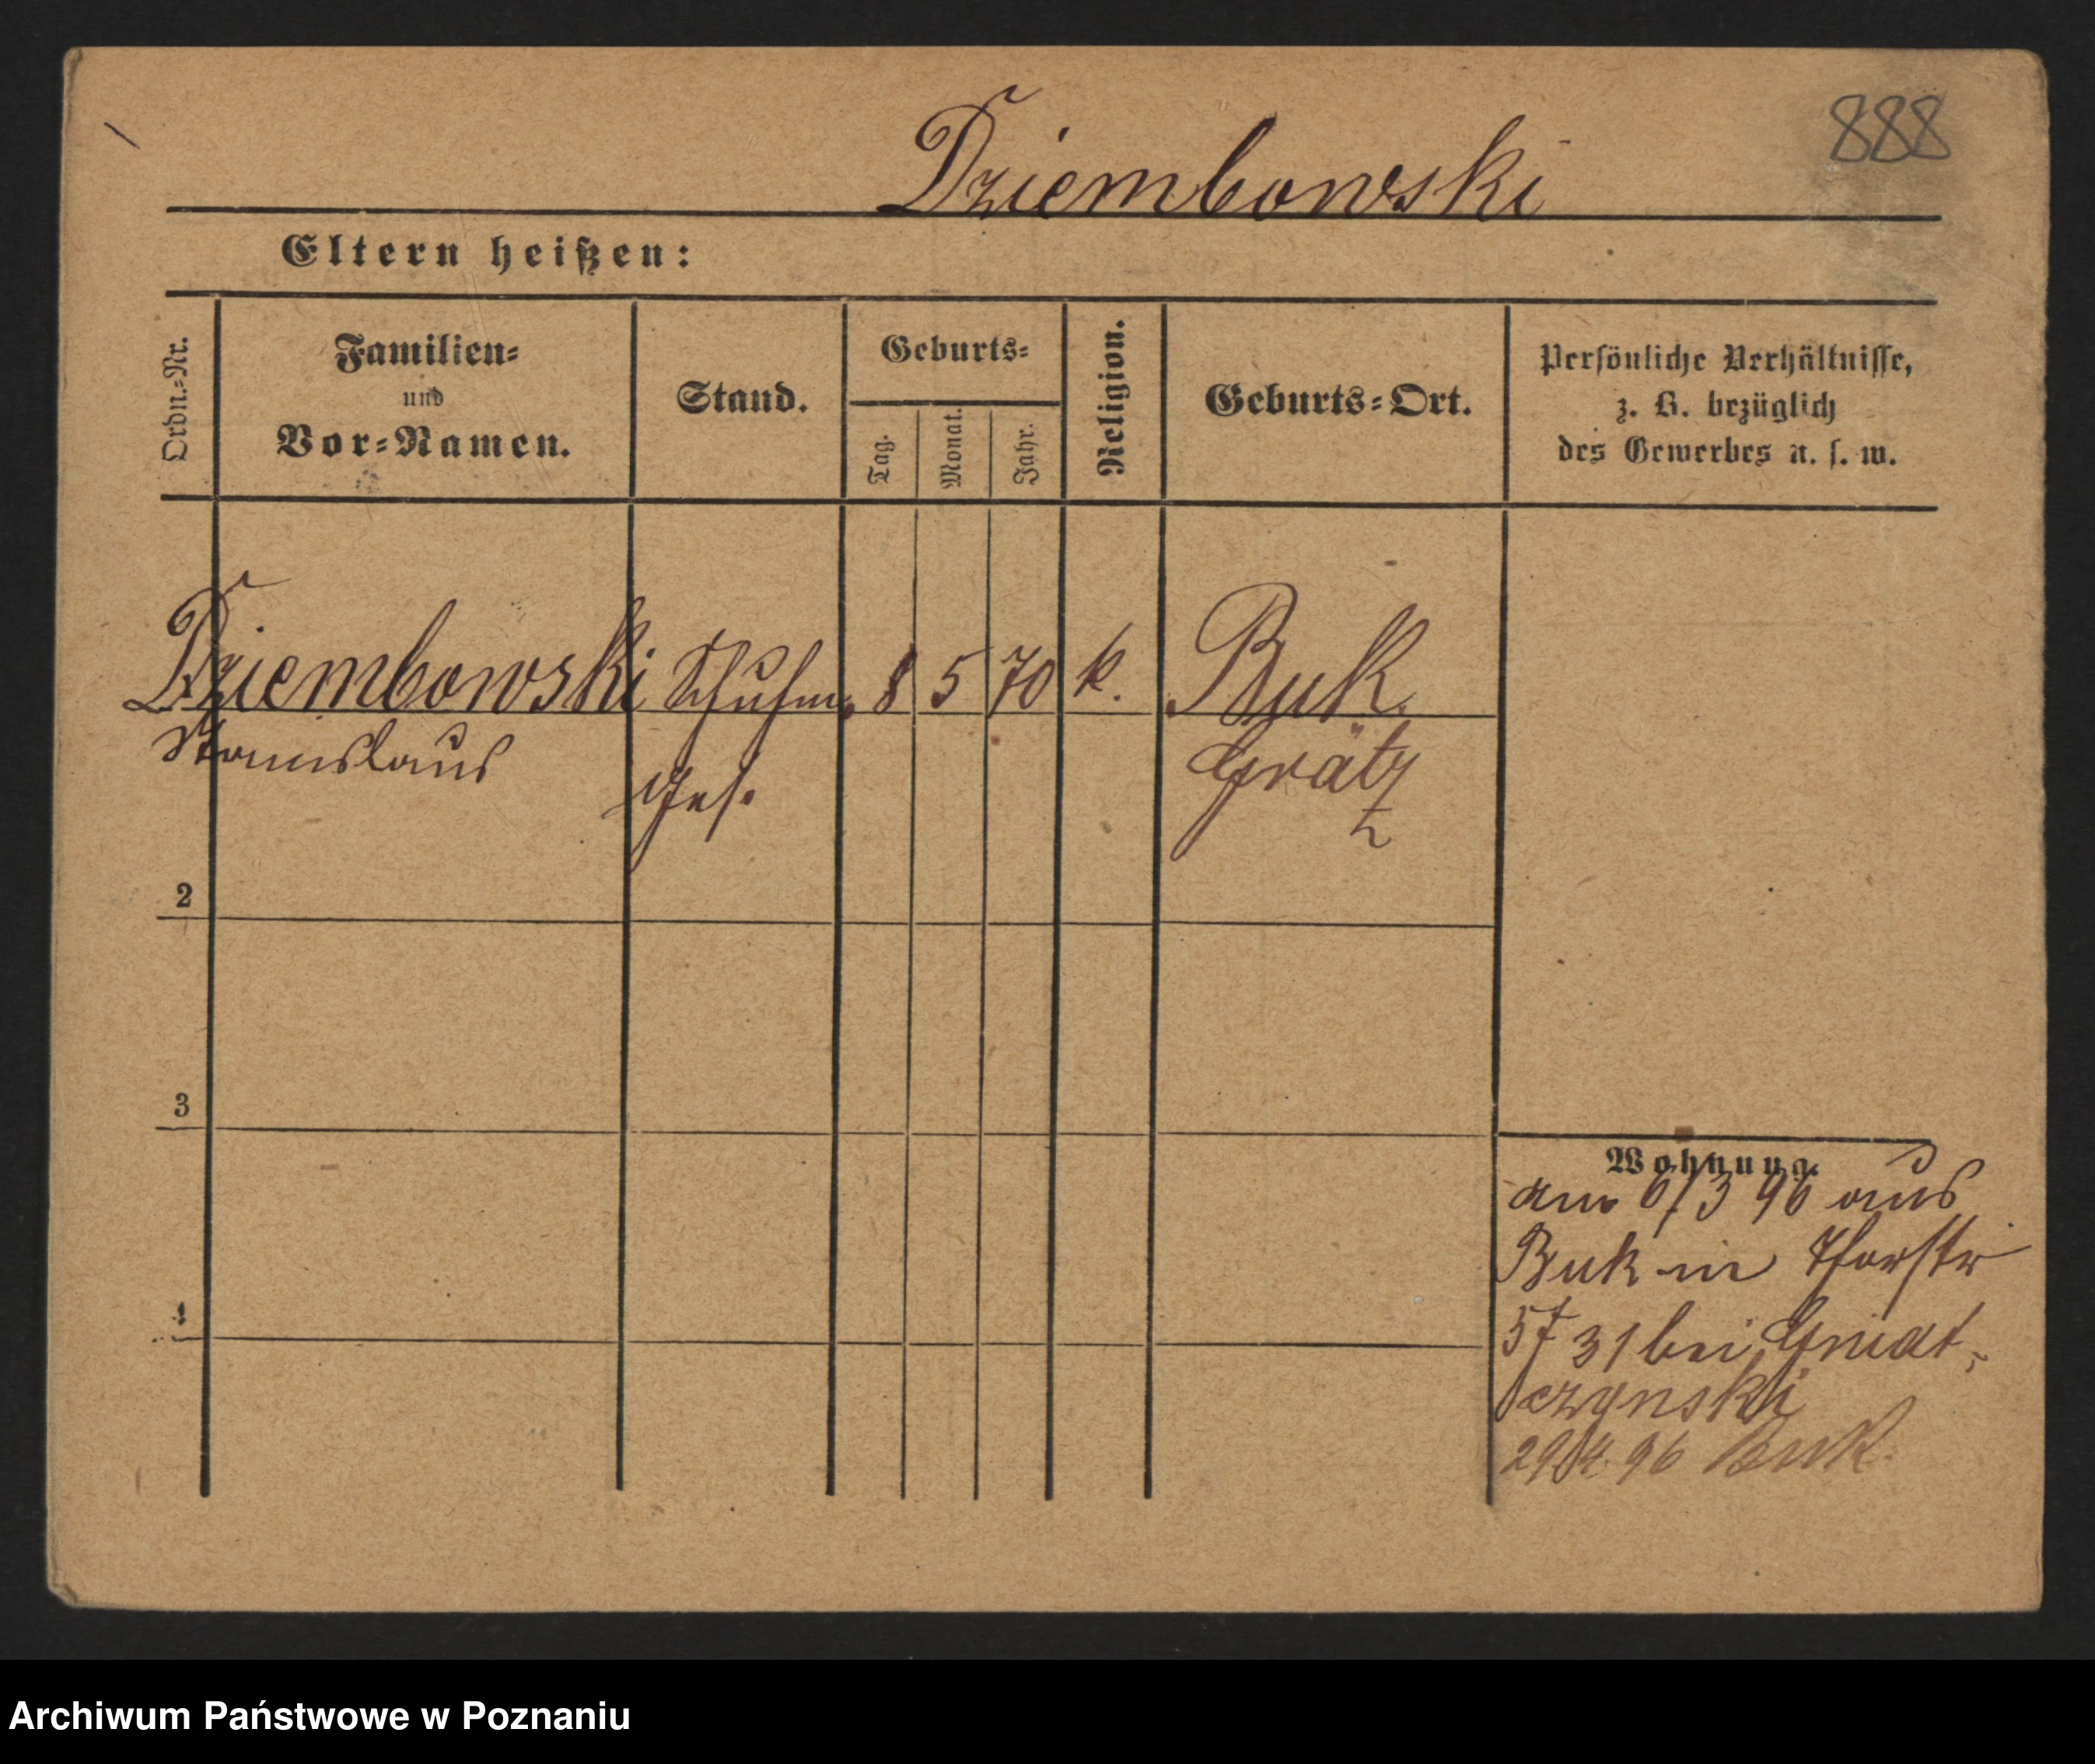 888
Dziembowski
Eltern heißen:
Ordn.-Nr.
Familien-
und
Vor-Namen.
Stand.
Geburts-
Tag.
Monat.
Jahr.
Religion.
Geburts-Ort.
Persönliche Verhältnisse,
z. B. bezüglich
des Gewerbes u. s. w.
Dziembowski Schuhm. 8 5 70 k. Buk.
Stanislaus Ges. Grätz
2
3
4
Wohnung.
am 6/3 96 aus
Buk in Thorstr
31 bei Gniat-
czynski
29/4 96 Buk.
Archiwum Państwowe w Poznaniu